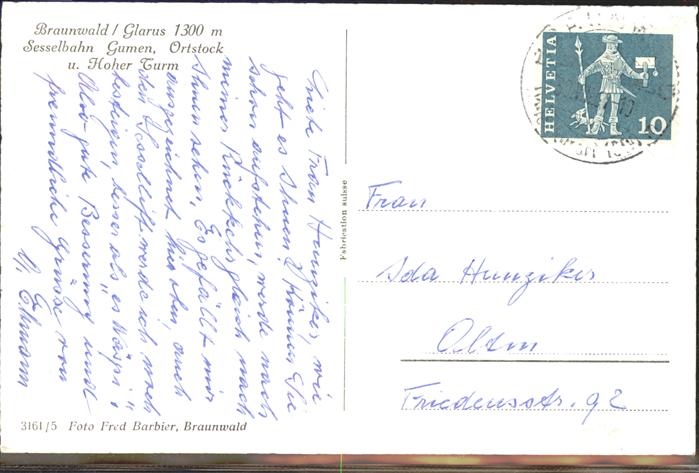 Braunwald / Glarus 1300 m
Sesselbahn Gumen, Ortstock
u. Hoher Turm
Liebe Frau Hunziker, wie
geht es Ihnen? Können Sie
schon aufstehen, werde nach
meiner Rückkehr gleich nach
Ihnen sehen. Es gefällt mir
ausgezeichnet hier oben, auch
den Sessellift werde ich noch
besteigen, besser als "es Wäspi".
Also gute Besserung und
freundliche Grüsse von
Fabrication suisse
HELVETIA
10
Frau
Ida Hunziker
Olten
Friedensstr. 92
3161/5 Foto Fred Barbier, Braunwald